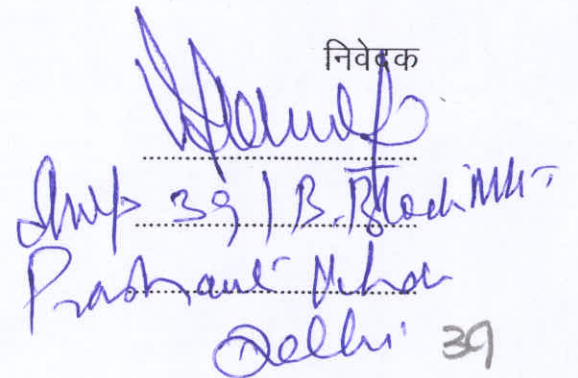 निवेदक
Shop 39 | B. Block Mkt
Prashant Vihar
Delhi
39